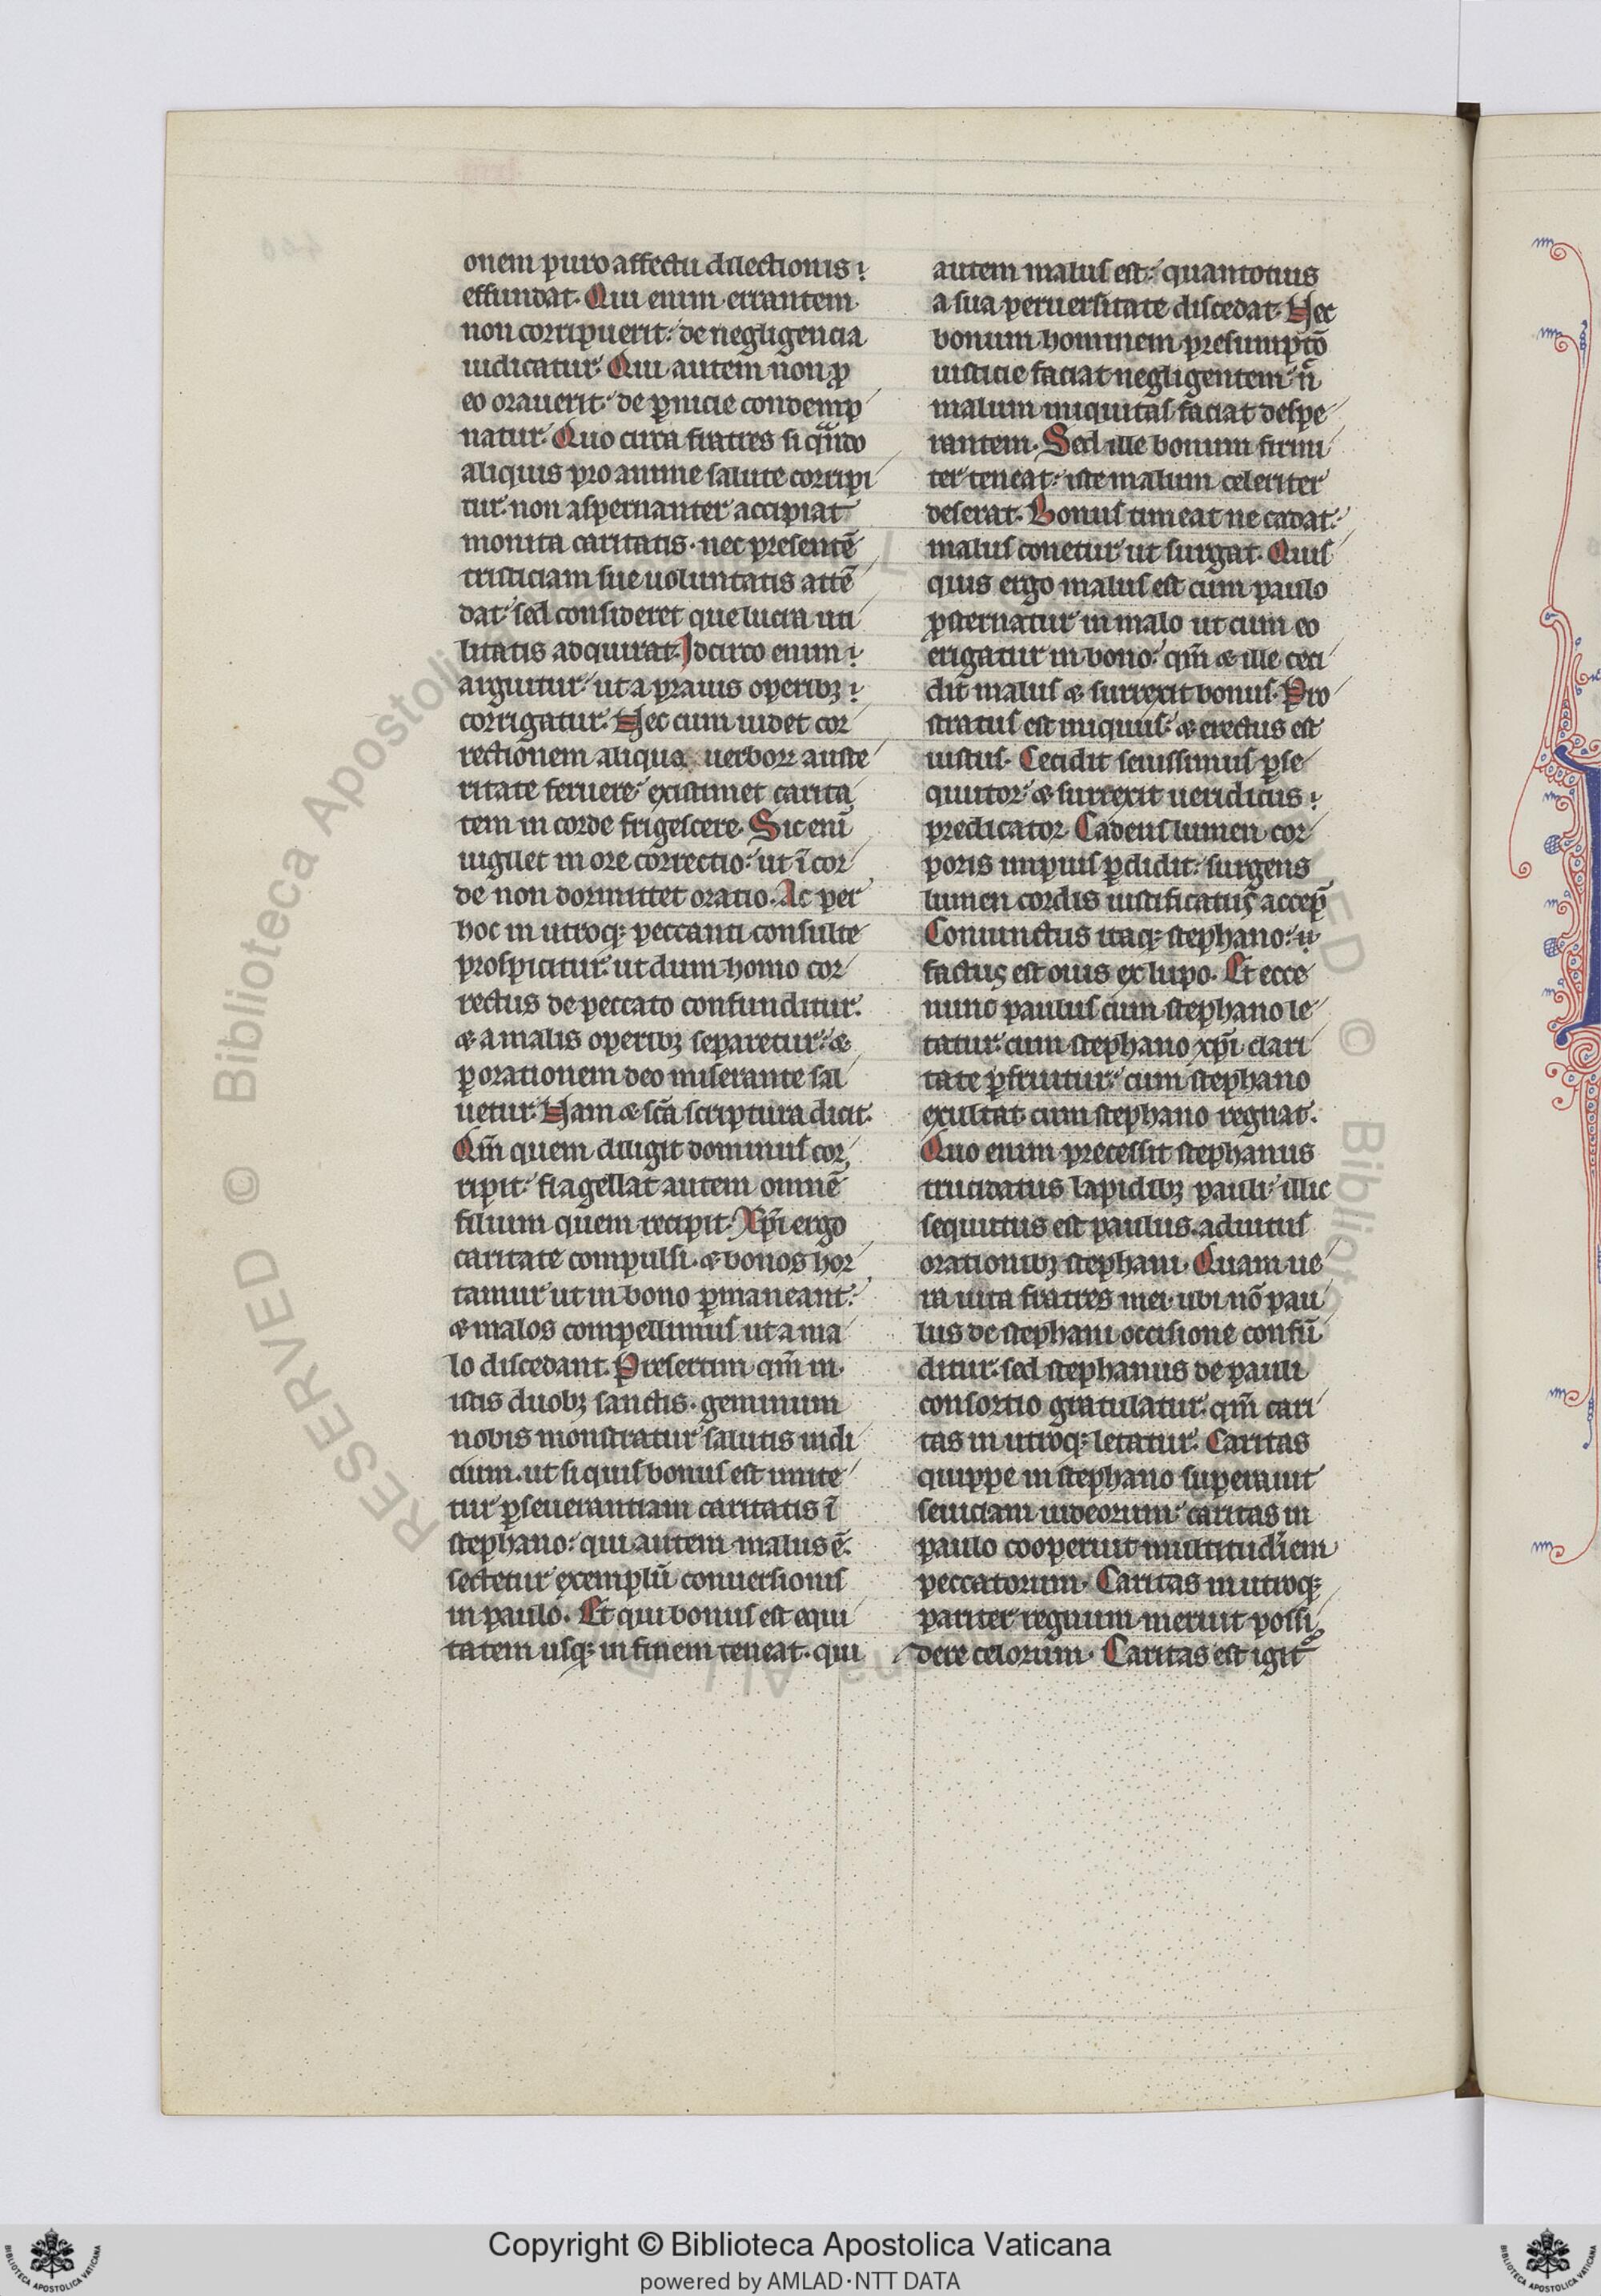 onem puro affectu dilectionis ⁊
effundat. Qui enim errantem
non corripuerit: de negligencia
iudicatur. Qui autem non ꝓ
eo orauerit: de ꝑnicie condemp
natur. Quo circa fratres si qn̄do
aliquis pro anime salute corripi
tur. non aspernanter accipiat
monita caritatis. nec presentē
tristiciam sue uoluntatis attē
dat: sed consideret que lucra uti
litatis adquirat. Idcirco enim
arguitur: ut a prauis operibꝫ
corrigatur. Nec cum uidet cor
rectionem aliqua uerboꝝ auste
ritate feruere: existimet carita
tem in corde frigescere. Sic eni̅
uigilet in ore correctio: ut i̅ cor
de non dormitet oratio. Ac per
hoc in utroqꝫ peccanti consulte
prospicitur. ut dum homo cor
rectus de peccato confunditur.
⁊ a malis operibꝫ separetur: ⁊
ꝑ orationem deo miserante sal
uetur. Nam ⁊ sc̄a scriptura dicit.
Qm̄ quem diligit dominus cor
ripit: flagellat autem omnē
filium quem recipit. Xp̄i ergo
caritate compulsi. ⁊ bonos hor
tamur ut in bono ꝑmaneant:
⁊ malos compellimus ut a ma
lo discedant. Presertim qm̄ in
istis duobꝫ sanctis. geminum
nobis monstratur salutis indi
cium. ut si quis bonus est imite
tur ꝑseuerantiam caritatis i̅
stephano: qui autem malus ē.
sectetur exemplu̅ conuersionis
in paulo. Et qui bonus est equi
tatem usqꝫ in finem teneat. qui
autem malus est: quantotius
a sua peruersitate discedat. Nec
bonum hominem presumptō
iusticie faciat negligentem: n̄
malum iniquitas faciat despe
rantem. Sed ille bonum firmi
ter teneat: iste malum celeriter
deserat. Bonus timeat ne cadat:
malus conetur ut surgat. Quis
quis ergo malus est cum paulo
ꝓsternatur in malo ut cum eo
erigatur in bono: qm̄ ⁊ ille ceci
dit malus ⁊ surrexit bonus. Pro
stratus est iniquus: ⁊ erectus est
iustus. Cecidit seuissimus ꝑse
quutor: ⁊ surrexit ueridicus
predicator. Cadens lumen cor
poris impius ꝑdidit: surgens
lumen cordis iustificatus accep̄
Coniunctus itaqꝫ stephano:
factus est ouis ex lupo. Et ecce
nunc paulus cum stephano le
tatur. cum stephano xp̄i clari
tate ꝑfruitur: cum stephano
exultat cum stephano regnat.
Quo enim precessit stephanus
trucidatus lapidibꝫ pauli: illic
sequutus est paulus. adiutus
orationibꝫ stephani. Quam ue
ra uita fratres mei. ubi nō pau
lus de stephani occisione confu̅
ditur. sed stephanus de pauli
consortio gratulatur. qm̄ cari
tas in utroqꝫ letatur. Caritas
quippe in stephano superauit
seuiciam iudeorum: caritas in
paulo cooperuit multitudinem
peccatorum. Caritas in utroqꝫ
pariter regnum meruit possi
dere celorum. Caritas est igit᷑
Copyright © Biblioteca Apostolica Vaticana
powered by AMLAD·NTT DATA
RESERVED © Biblioteca Apostolica